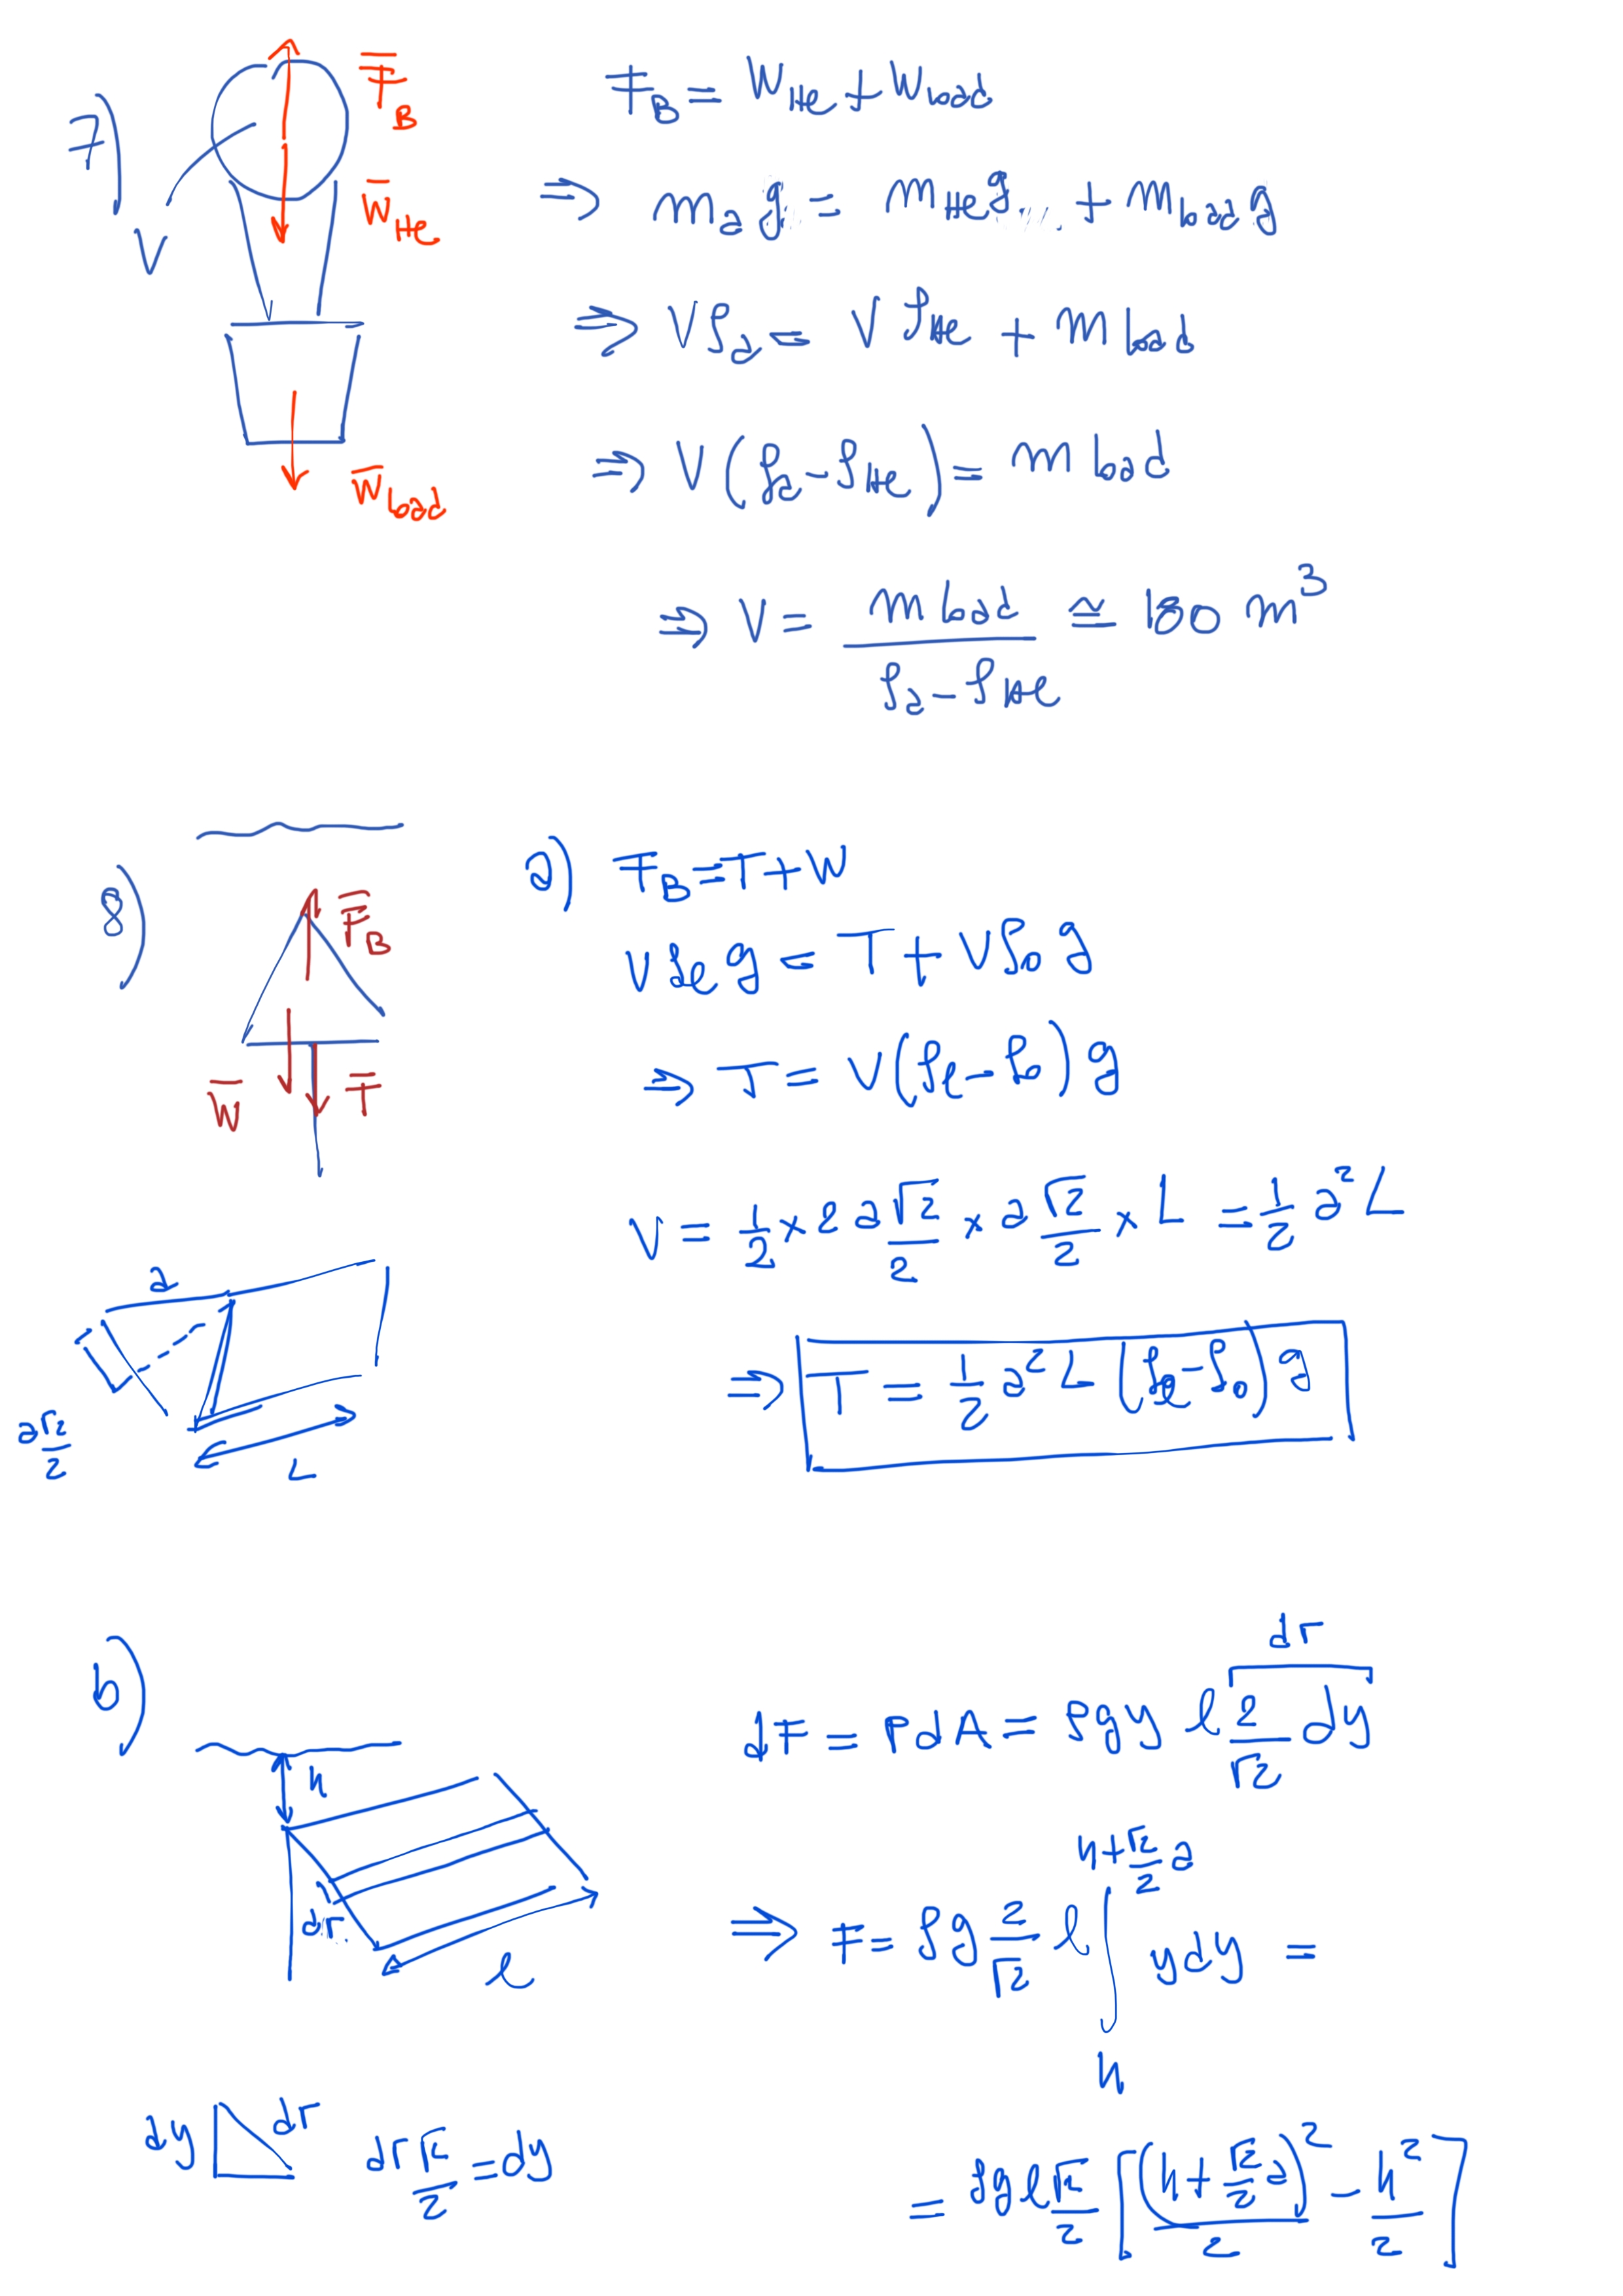 7)
V
F̅_B
W̅_He
W̅_load
F_B = W_He + W_load
⇒ m_a g = m_He g + m_load g
⇒ Vρ_a = Vρ_He + m_load
⇒ V(ρ_a - ρ_He) = m load
⇒ V = m load / (ρ_a - ρ_He) ≅ 180 m³
8)
F̅_B
W̅
T̅
a) F_B = T + W
Vρ_e g = T + Vρ_o g
⇒ T = V(ρ_e - ρ_o) g
V = 1/2 × 2 a √2/2 × a √2/2 × L = 1/2 a² L
a
a√2/2
L
⇒ T = 1/2 a² L (ρ_e - ρ_o) g
b)
h
dr
l
dr
dF = P dA = ρgy l 2/√2 dy
⇒ F = ρg 2/√2 l ∫_h^{h + √2/2 a} y dy =
dy
dr
dr √2/2 = dy
= ρgl √2/2 [ (h + √2/2 a)²/2 - h²/2 ]